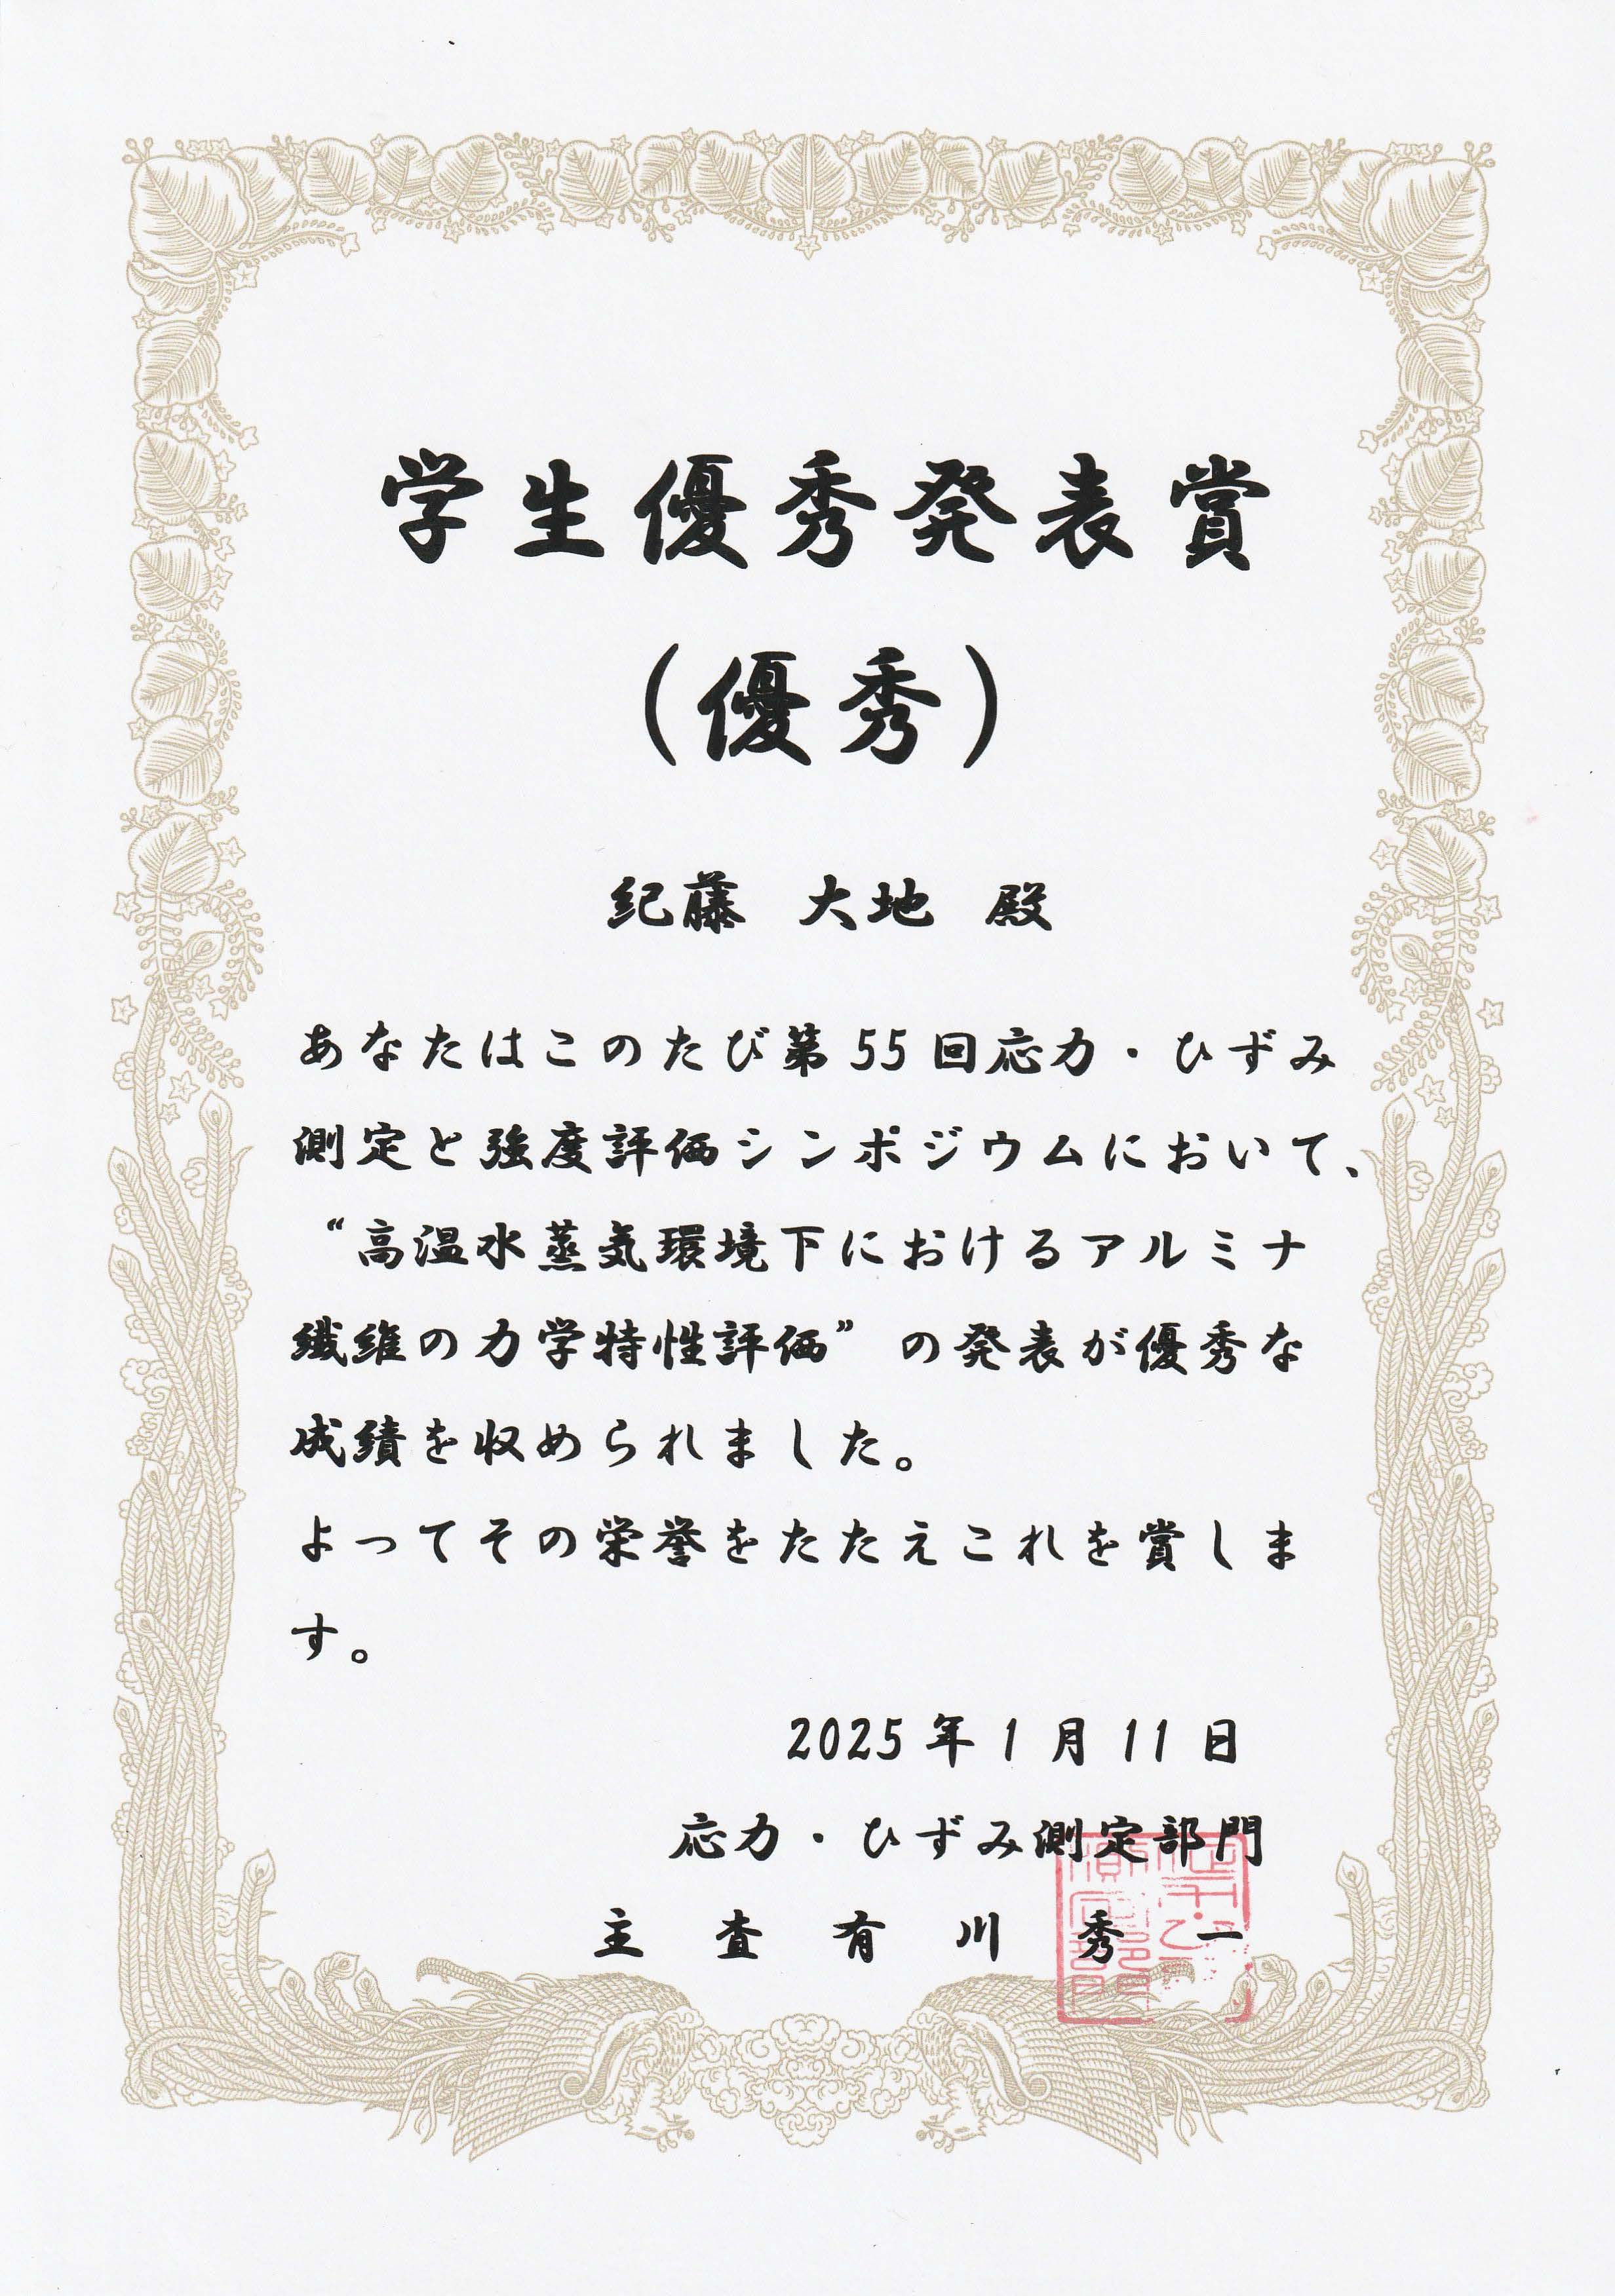 学生優秀発表賞
（優秀）
紀藤 大地 殿
あなたはこのたび第55回応力・ひずみ
測定と強度評価シンポジウムにおいて、
“高温水蒸気環境下におけるアルミナ
繊維の力学特性評価”の発表が優秀な
成績を収められました。
よってその栄誉をたたえこれを賞しま
す。
2025年1月11日
応力・ひずみ測定部門
主査 有川 秀一